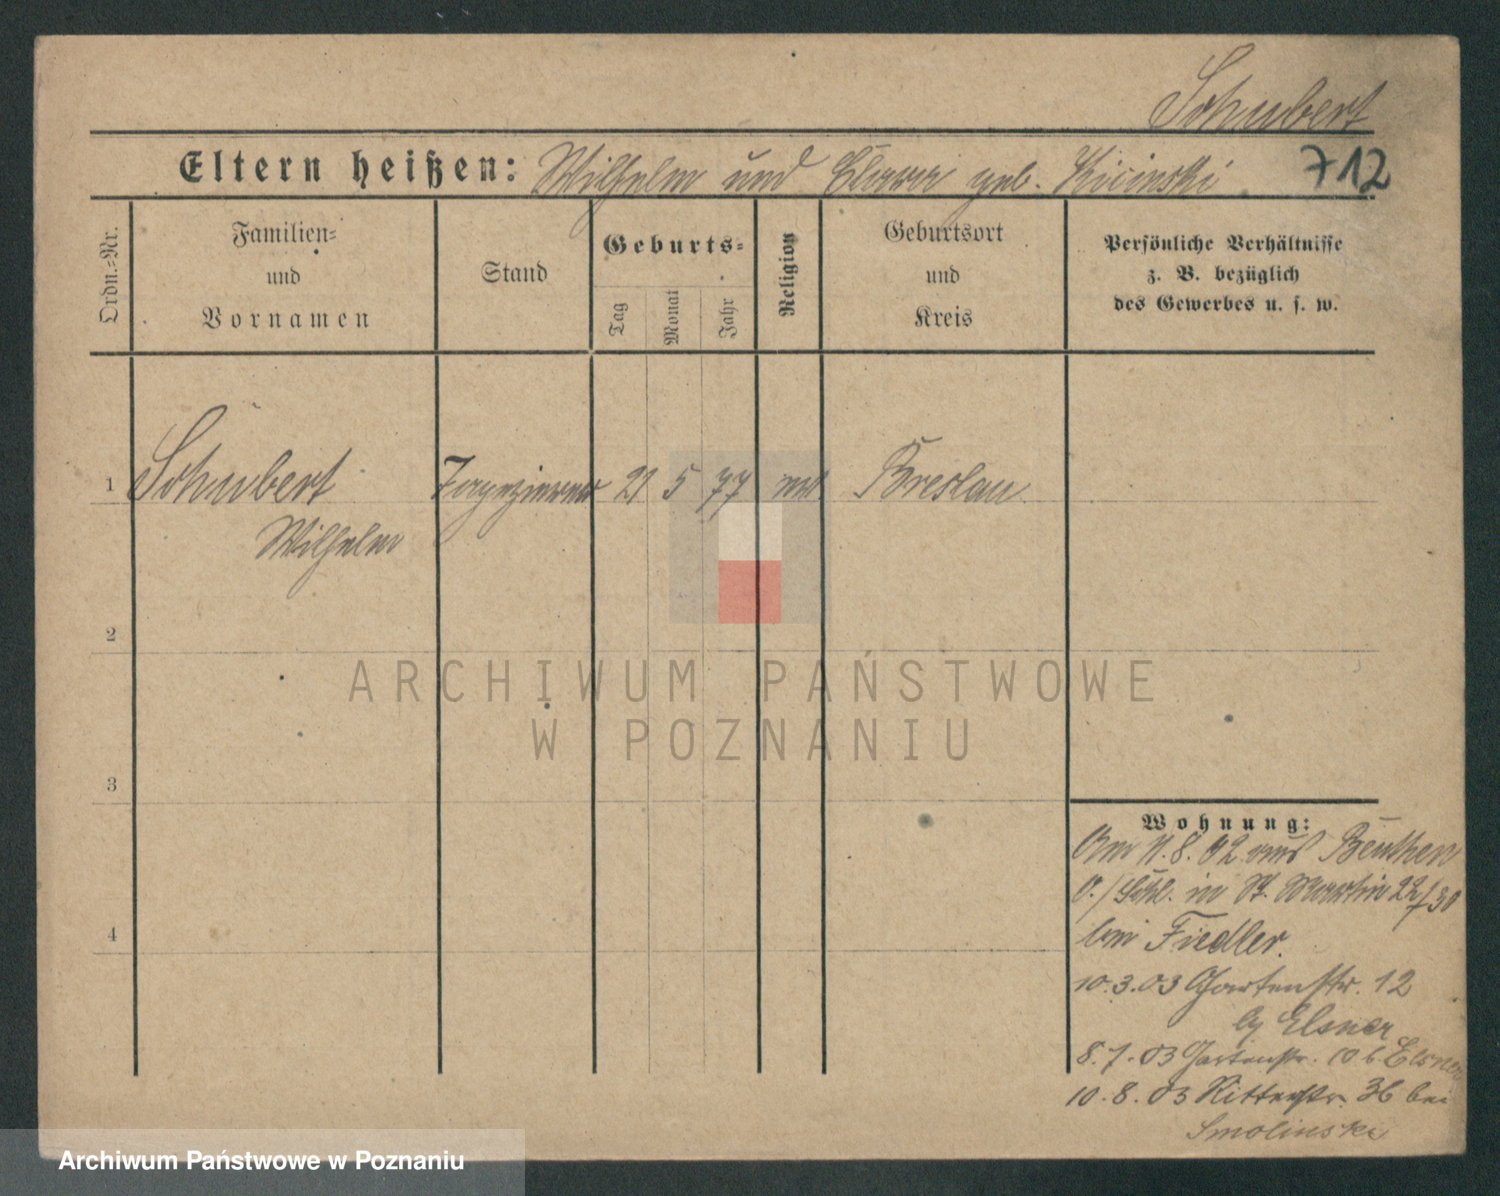 Schubert
Eltern heißen: Wilhelm und Clara geb. Kicinski 712
Ordn.=Nr.
Familien=
und
Vornamen
Stand
Geburts=
Tag
Monat
Jahr
Religion
Geburtsort
und
Kreis
Persönliche Verhältnisse
z. B. bezüglich
des Gewerbes u. s. w.
1 Schubert Tapezierer 21 5 77 Breslau
Wilhelm
2
3
4
ARCHIWUM PAŃSTWOWE
W POZNANIU
Wohnung:
11.8.02 aus Beuthen
O./Schl. in St. Martin 22/30
bei Fiedler.
10.3.03 Gartenstr. 12
b/ Elsner
8.7.03 Gartenstr. 10 b. Elsner
10.8.03 Ritterstr. 36 bei
Smolinski
Archiwum Państwowe w Poznaniu